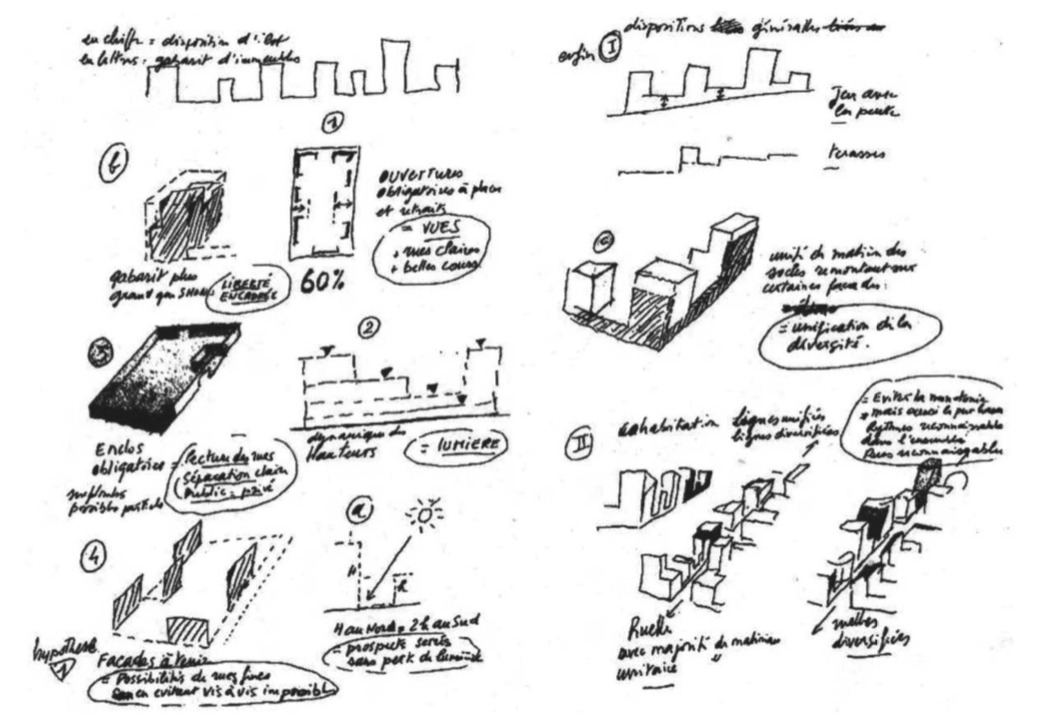 en chiffre = disposition d'îlot
en lettres : gabarit d'immeubles
1
b
OUVERTURES
obligatoires à placer
et retraits
= VUES
+ rues claires
+ belles cours
gabarit plus
grand que SHON
LIBERTÉ
ENCADRÉE
60%
3
Enclos
obligatoire
= lecture des rues
séparation claire
public - privé
possible
2
dynamique des
Hauteurs
= LUMIERE
4
hypothèse
1
Façades à tenir
= Possibilités de rues fines
en évitant vis à vis impossible
a
H
h
H au Nord = 2h au Sud
= prospects serrés
sans perte de lumière
enfin I dispositions générales
Jeu avec
la pente
terrasses
c
unité de matière des
socles remontant sur
certaines façades :
= unification de la
diversité.
II
cohabitation
lignes unifiées
lignes diversifiées
= Eviter la monotonie
+ mais aussi le pur
Rythmes reconnaissables
dans l'ensemble
Rues reconnaissables
Ruelle
avec majorité de matériau
unitaire
ruelles
diversifiées